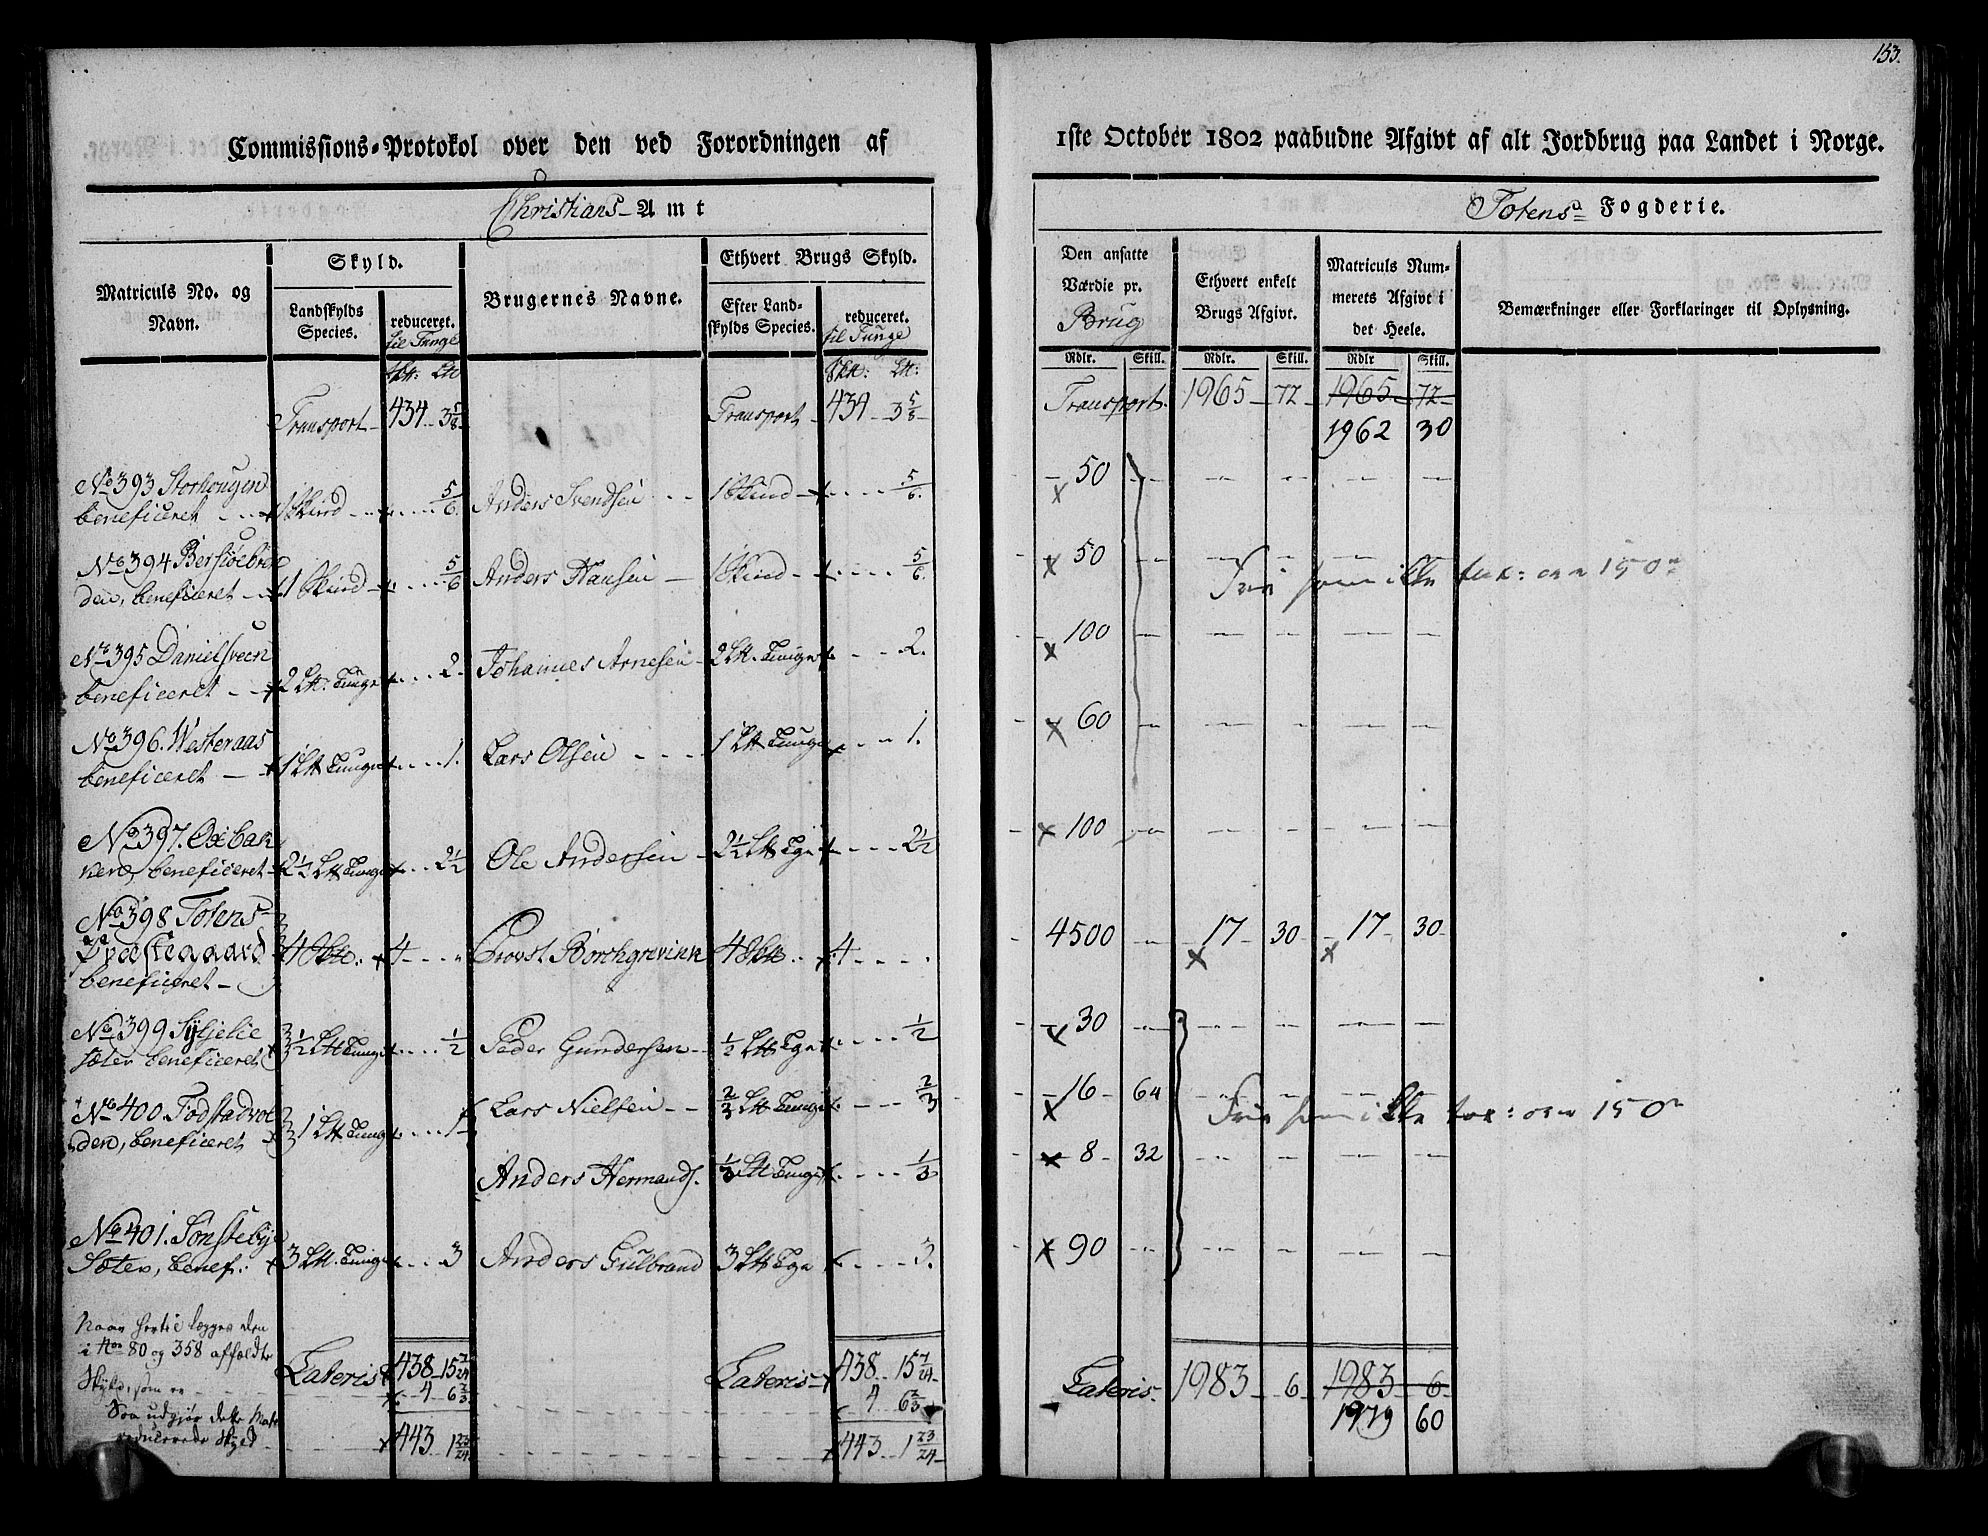 153.
Commissions-Protokol over den ved Forordningen af 1ste October 1802 paabudne Afgivt af alt Jordbrug paa Landet i Norge.
Christians Amt
Totens Fogderie.
Matriculs No. og Navn.
Skyld.
Landskylds Species.
reduceret. til Tunge
Brugernes Navne.
Ethvert Brugs Skyld.
Efter Landskylds Species.
reduceret. til Tunge
Den ansatte Værdie pr. Brug
Ethvert enkelt Brugs Afgivt.
Matriculs Nummerets Afgivt i det Heele.
Bemærkninger eller Forklaringer til Oplysning.
Rdlr. Skill. Rdlr. Skill. Rdlr Skill.
Transport 434 3 5/8 Transport 434 3 5/8 Transport. 1965 72 1965 72
1962 30
No 393 Storhougen
beneficeret 1 Skind 5/6 Anders Svendsen 1 Skind 5/6. 50
No 394 Bersvebren
den, beneficeret 1 Skind 5/6 Anders Hansen 1 Skind 5/6. 50
Frie som ikke tax: over 150 r
No 395 Danielsveen
beneficeret 2 Lt. Tunge 2. Johannes Arnesen 2 Lt. Tunge 2. 100
No 396. Westeraas
beneficeret 1 Lt Tunge 1. Lars Olsen 1 Lt Tunge 1. 60
No 397. Oxbak
ken, beneficeret 2 1/2 Lt Tunge 2 1/2 Ole Andersen 2 1/2 Lt Tge 2 1/2 100
No 398 Totens
Præstegaard
beneficeret 4 4 Provst Borchgrevink 4 4 4500 17 30 17 30
No 399 Sÿljelie
Sæter beneficeret 1/2 Lt Tunge 1/2 Peder Gundersen 1/2 Lt Tge 1/2 30
No 400. Todstadvol
den, beneficeret 1 Lt Tunge 1 Lars Nielsen 2/3 Lt Tunge 2/3 16 64
Frie som ikke tax: over 150 r
Anders Hermands. 1/3 Lt Tunge 1/3 8 32
No 401. Sønstebÿe
Sæter, benef: 3 Lt. Tunge 3 Anders Gulbrand 3 Lt Tge 3. 90
Naar hertil lægges den
i Nos 80 og 358 affældte
Skyld, som er
Saa udgjør dette Mat:
reducerede Skyld
Lateris 438 15 7/24 Lateris 438 15 7/24 Lateris. 1983 6 1983 6
4 6 2/3 4 6 2/3 1979 60
443 1 23/24 443 1 23/24